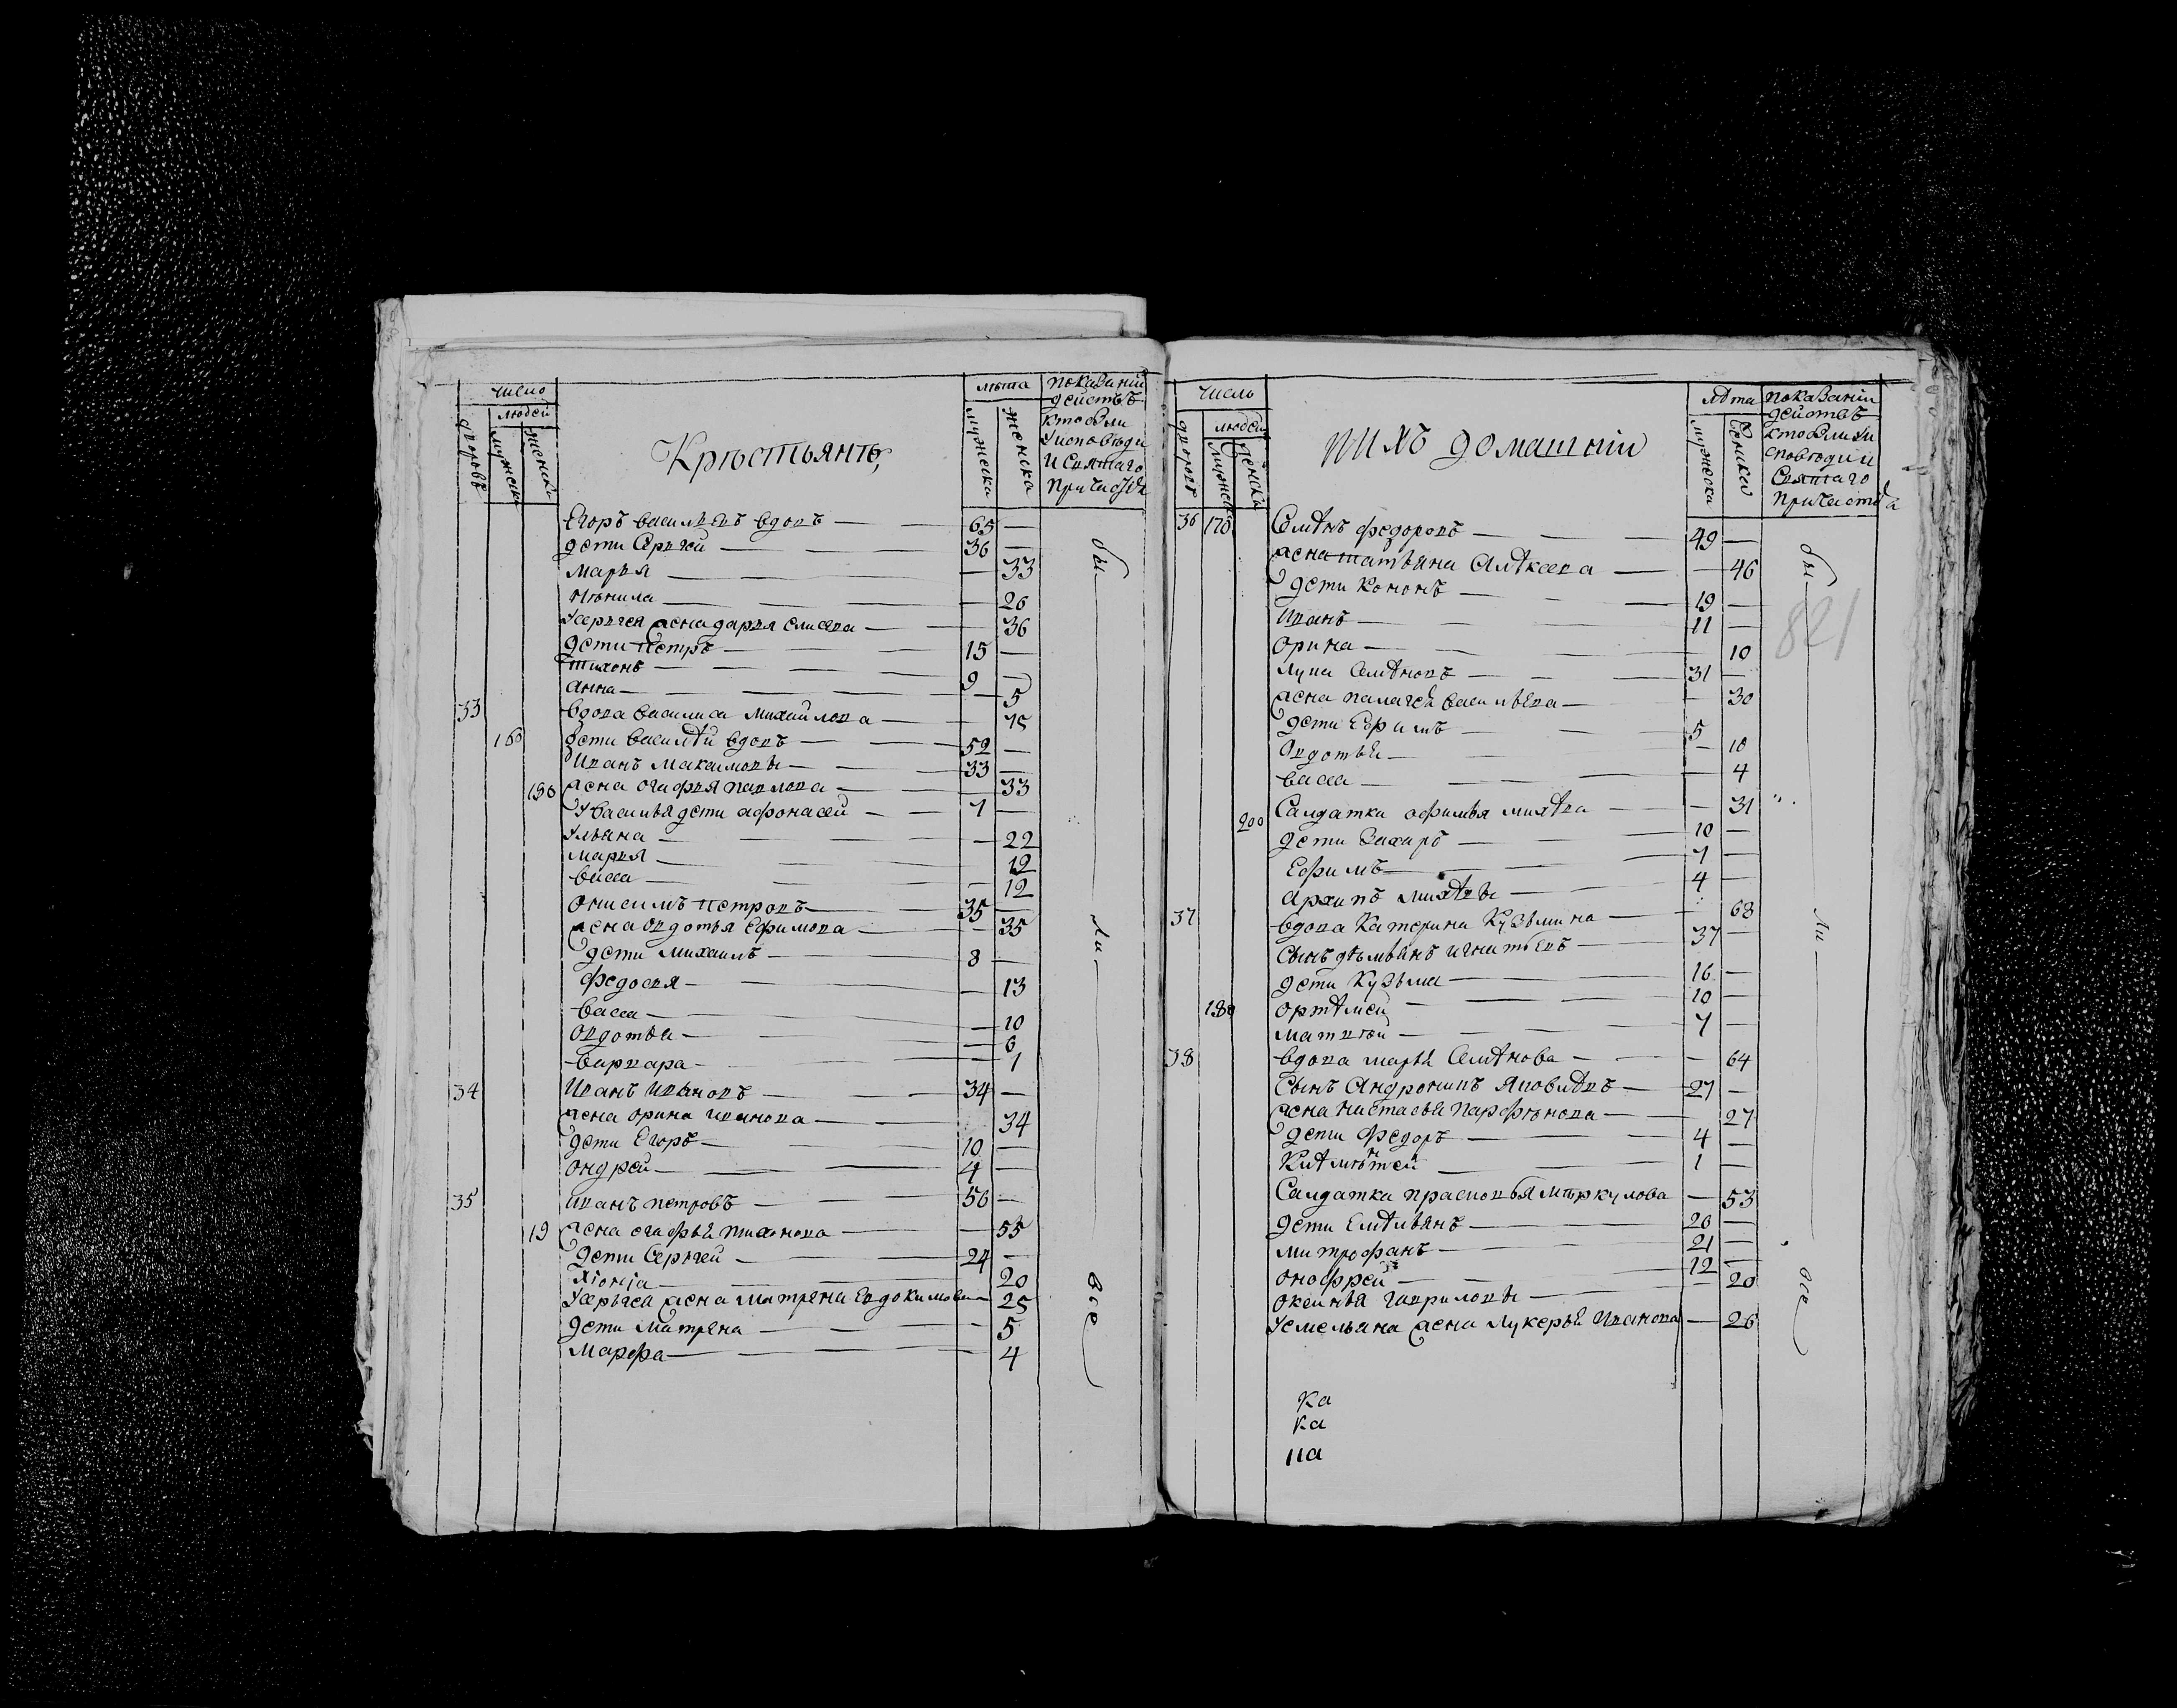 Число
людей
дворовъ
мужеска
женска
Крѣстьянѣ,
лѣта
мужеска
женска
показаніи
действъ
кто были
Уисповѣди
И Святаго
Причастія
Егоръ васильевъ вдовъ — 65 —
дети Сергѣй — 36 —
Марья — 33
Нѣнила — 26
Усергѣя жена дарья елисѣева — 36
дети Петръ — 15 —
Тихонъ — 9 —
Анна — 5
33 вдова василиса михайлова — 75
160 дети василѣй вдовъ — 52 —
Иванъ Максимовы — 33 —
190 жена огафья павлова — 33
Увасилья дети афонасей — 7 —
Ульяна — 22
Марья — 12
васса — 12
Онисимъ Петровъ — 35 —
жена овдотья Ефимова — 35
дети михаилъ — 8 —
Федосья — 13
васса — 10
Овдотья — 6
варвара — 1
34 Иванъ Ивановъ — 34 —
жена орина иванова — 34
дети Егоръ — 10 —
Ондрей — 4 —
35 Иванъ петровъ — 56 —
19 жена огафья тихонова — 55
дети Сергѣй — 24 —
Хіонія — 20
Усергѣя жена матрена Евдокимова — 25
дети матрена — 5
Марфа — 4
бы ли все
Число
людей
дворовъ
мужеска
женска
ИИХЪ домашніи
лѣта
мужеска
женска
показаніи
действъ
кто были Уи
сповѣди и
Святаго
причастія
821
36 170 Семѣнъ федоровъ — 49 —
жена татьяна Алѣксева — 46
дети Кононъ — 19 —
Иванъ — 11 —
Орина — 10
Лупа Семѣновъ — 31 —
жена палагея васильева — 30
дети Ефимъ — 5 —
Овдотья — 10
васса — 4
200 Салдатка офимья михѣва — 31
дети Захаръ — 10 —
Ефимъ — 7 —
Архипъ михѣвы — 4 —
37 вдова Катерина Кузьмина — 68
Сынъ дѣмьянъ игнатьевъ — 37 —
дети Кузьма — 16 —
180 Ортѣмей — 10 —
матвѣй — 7 —
38 вдова марья Семѣнова — 64
Сынъ Андроникъ Яковлѣвъ — 27 —
жена настасья парфѣнова — 27
дети Федоръ — 4 —
1 —
Салдатка прасковья мѣркулова — 53
дети Емѣльянъ — 26 —
митрофанъ — 21 —
Онофрей — 12 —
Оксинья гавриловы — 20
Уемельяна жена лукерья Иванова — 26
бы ли все
ка
ка
на